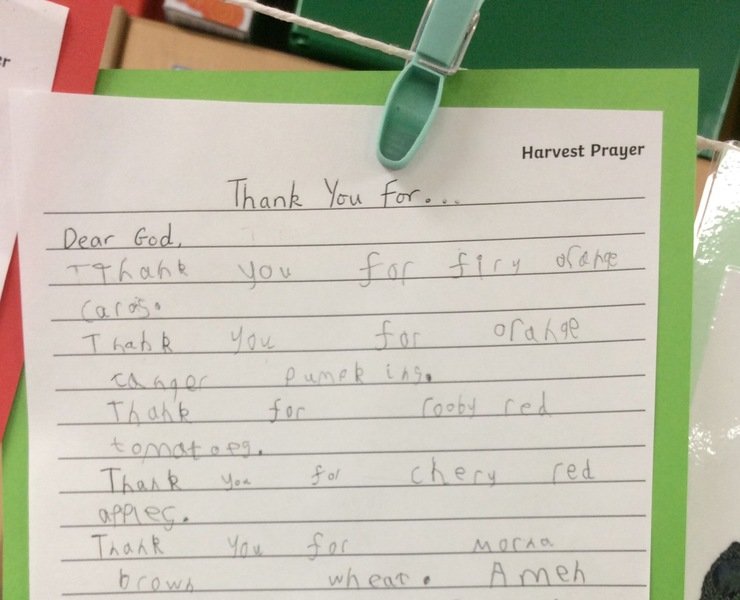 er
Harvest Prayer
Thank You for...
Dear God,
Thank you for firy orange
caros.
Thank you for orange
tanger pumpkins.
Thank for rooby red
tomatoes.
Thank you for chery red
apples.
Thank you for mocha
brown wheat. Amen